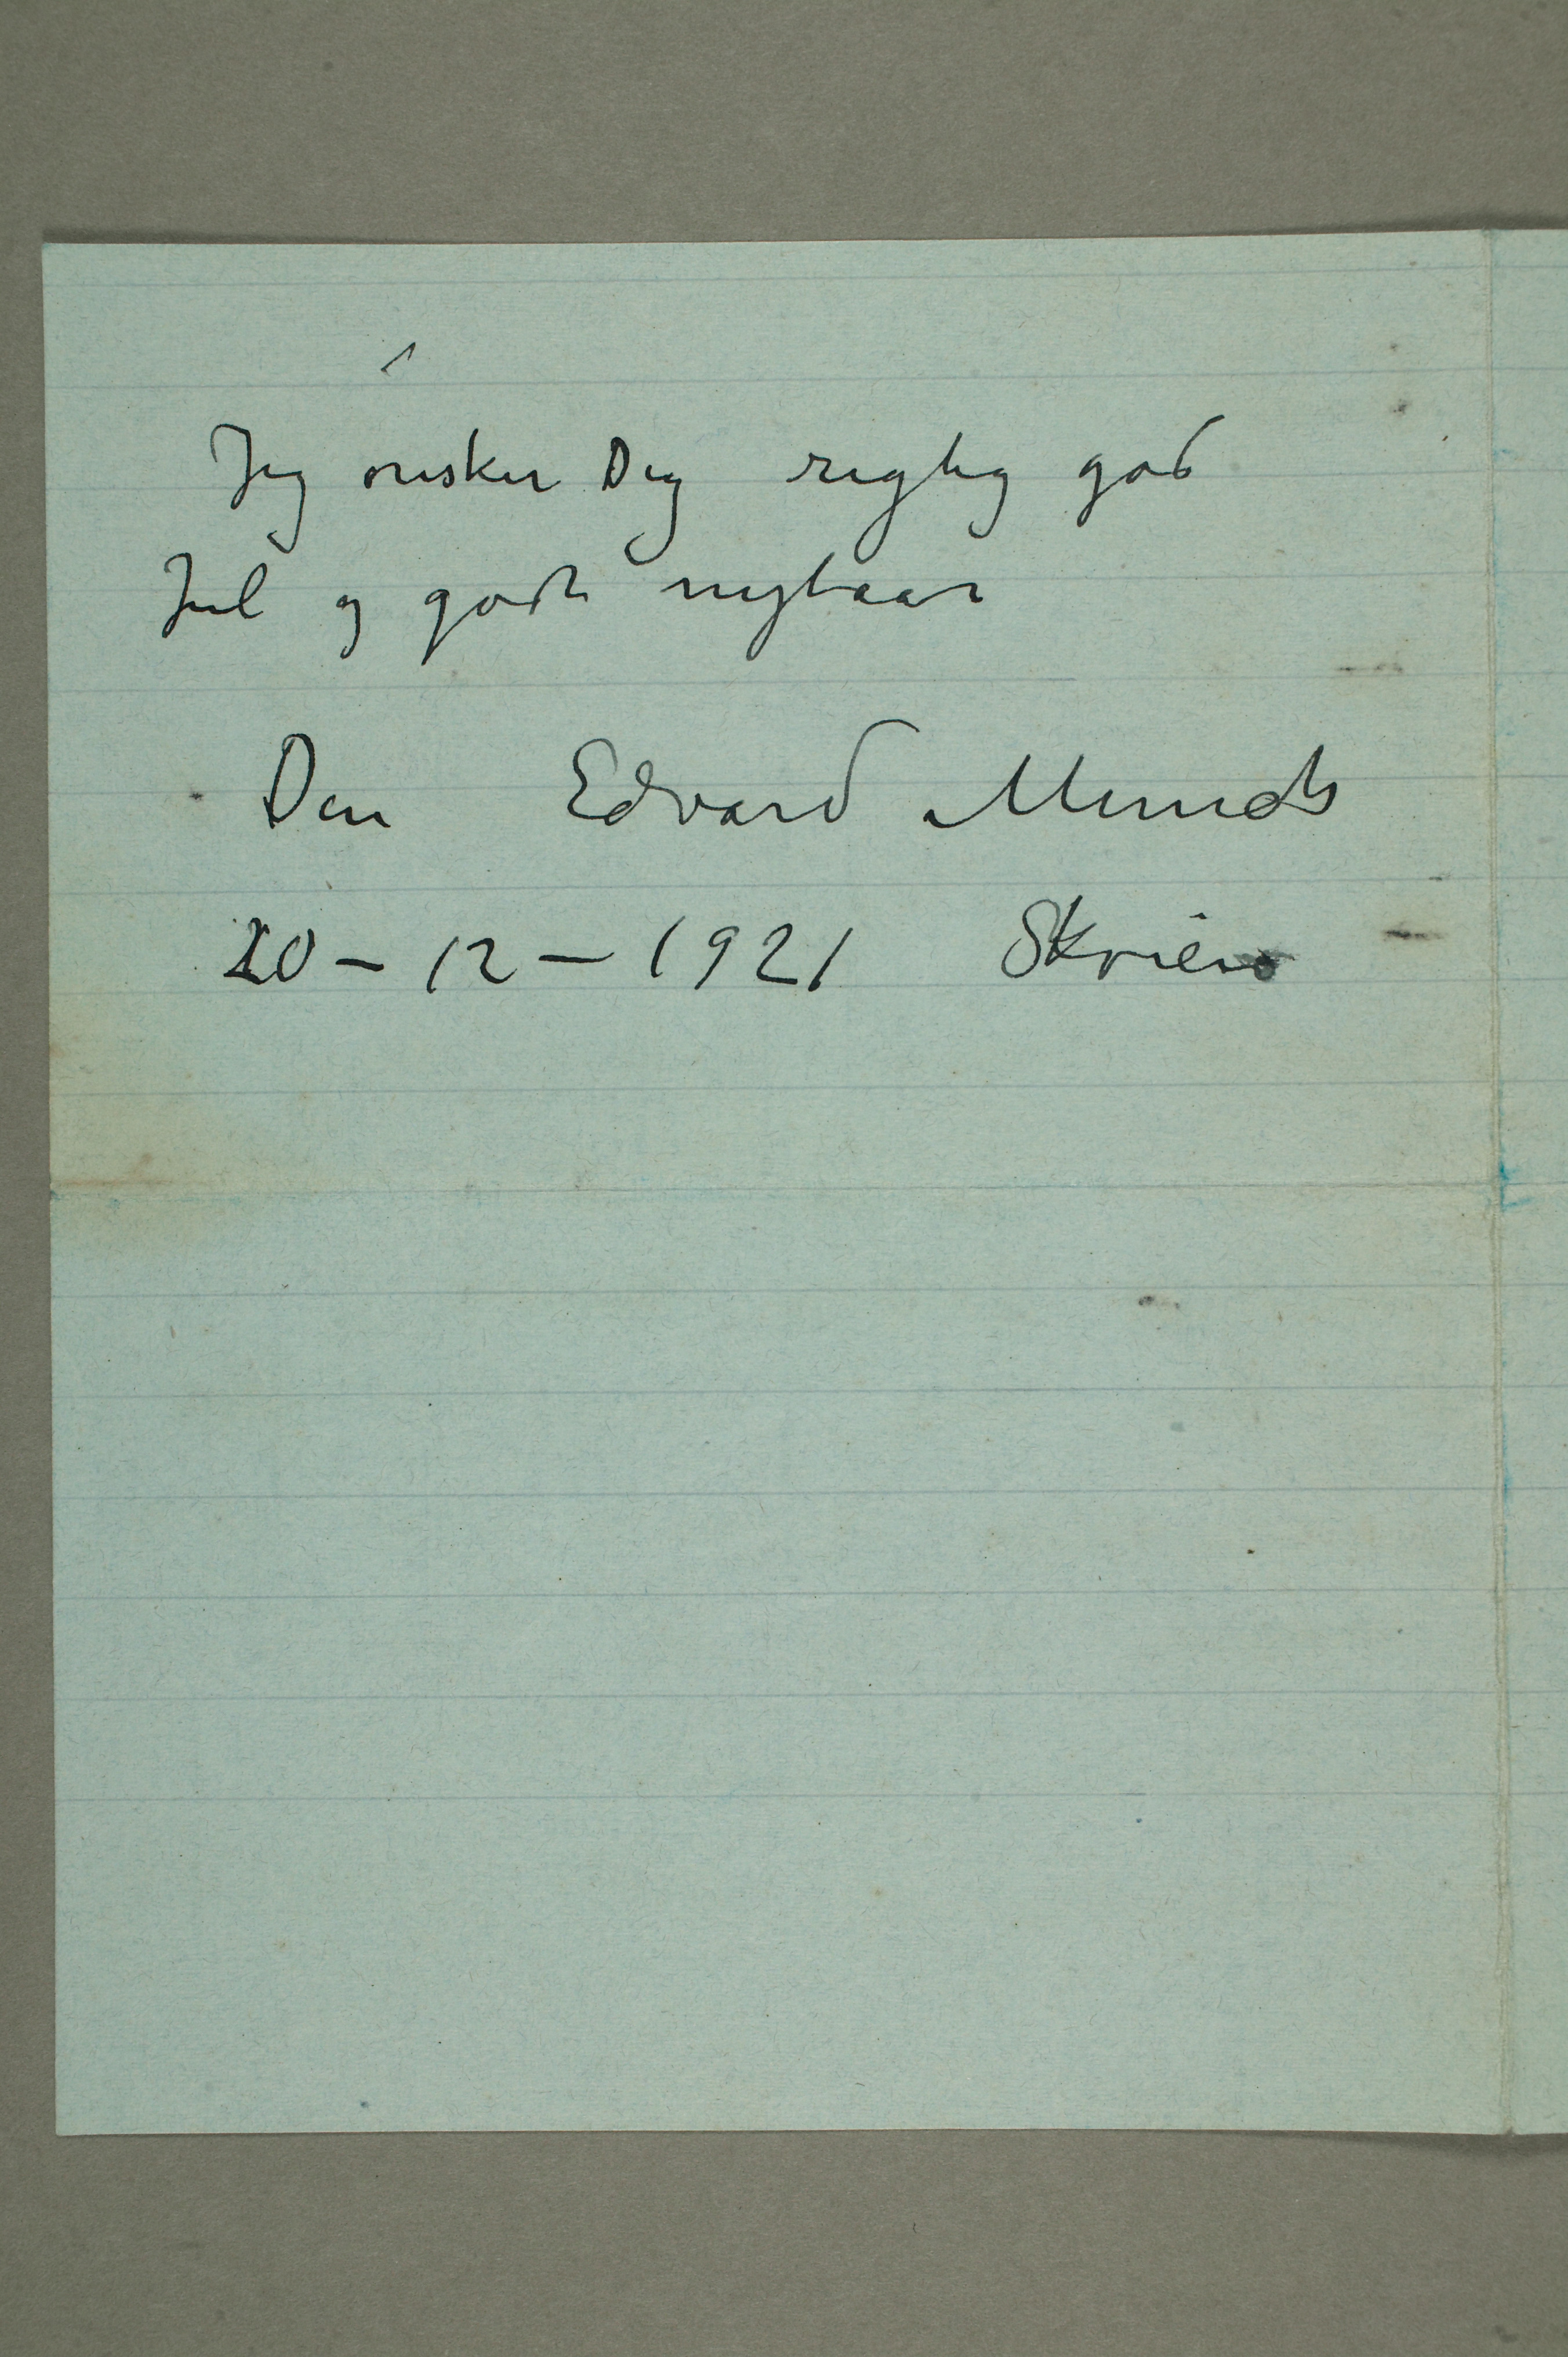 Jeg ønsker Dig rigtig god
Jul og godt nytaar
Din Edvard Munch
20 – 12 – 1921 Skrubben